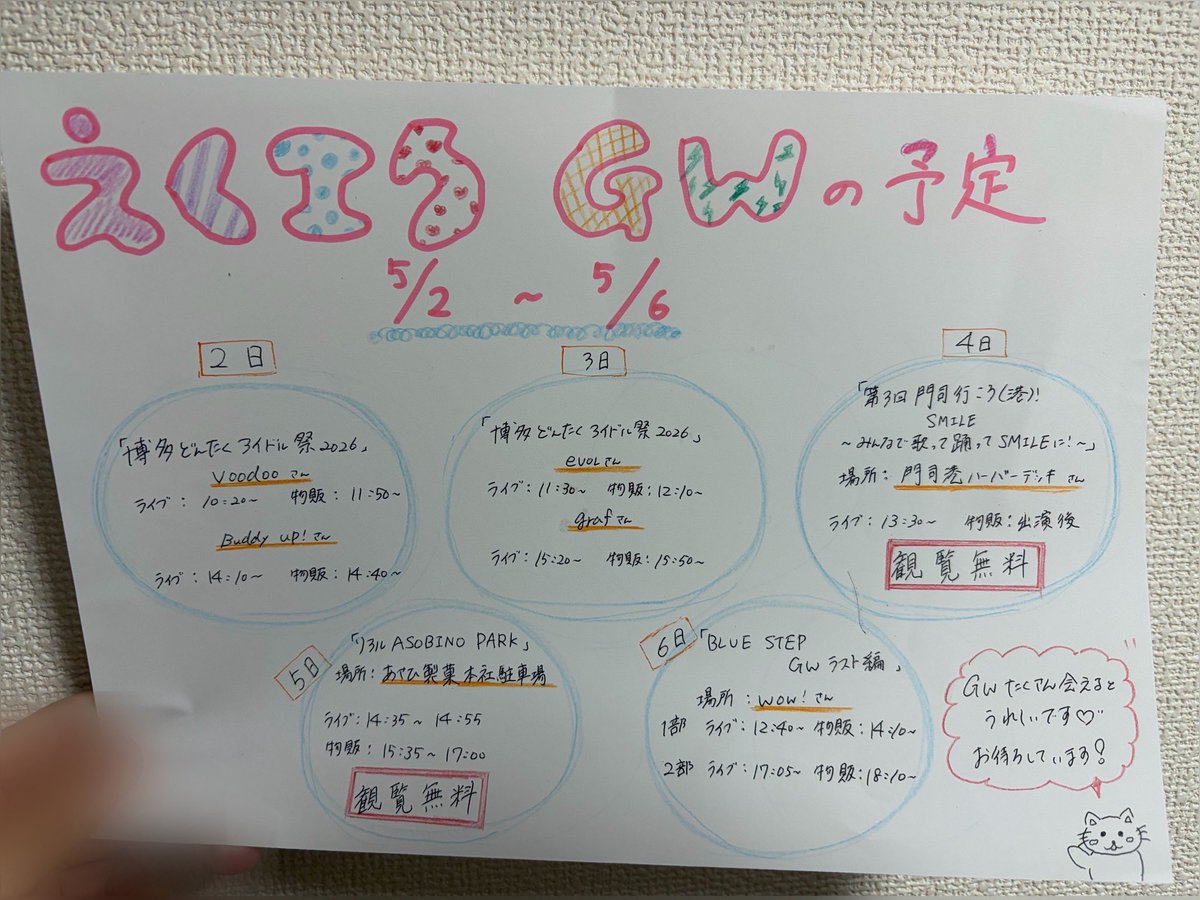 えくエろ GWの予定
5/2 ~ 5/6
2日
「博多どんたくアイドル祭2026」
voodooさん
ライブ: 10:20~ 物販: 11:50~
Buddy up!さん
ライブ: 14:10~ 物販: 14:40~
3日
「博多どんたくアイドル祭2026」
evolさん
ライブ: 11:30~ 物販: 12:10~
grafさん
ライブ: 15:20~ 物販: 15:50~
4日
「第3回門司行こう(港)!
SMILE
~みんなで歌って踊ってSMILEに!~」
場所: 門司港ハーバーデッキさん
ライブ: 13:30~ 物販: 出演後
観覧無料
5日
「リアルASOBINO PARK」
場所: あさひ製菓本社駐車場
ライブ: 14:35~14:55
物販: 15:35~17:00
観覧無料
6日
「BLUE STEP
GWラスト編」
場所: wow!さん
1部 ライブ: 12:40~ 物販: 14:10~
2部 ライブ: 17:05~ 物販: 18:10~
GWたくさん会えると
うれしいです♡
お待ちしています!